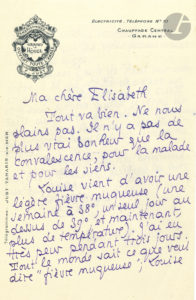 ÉLECTRICITÉ. TÉLÉPHONE N° 10
CHAUFFAGE CENTRAL
GARAGE
GRAND HÔTEL
Ma chère Elisabeth
Tout va bien. Ne nous
plains pas. Il n'y a pas de
plus vrai bonheur que la
convalescence, pour la malade
et pour les siens.
Louise vient d'avoir une
légère fièvre muqueuse (une
semaine à 38°, un seul jour au
dessus de 39° et maintenant
plus de température). J'ai eu
très peur pendant trois jours.
Tout le monde sait ce que veut
dire "fièvre muqueuse", Louise